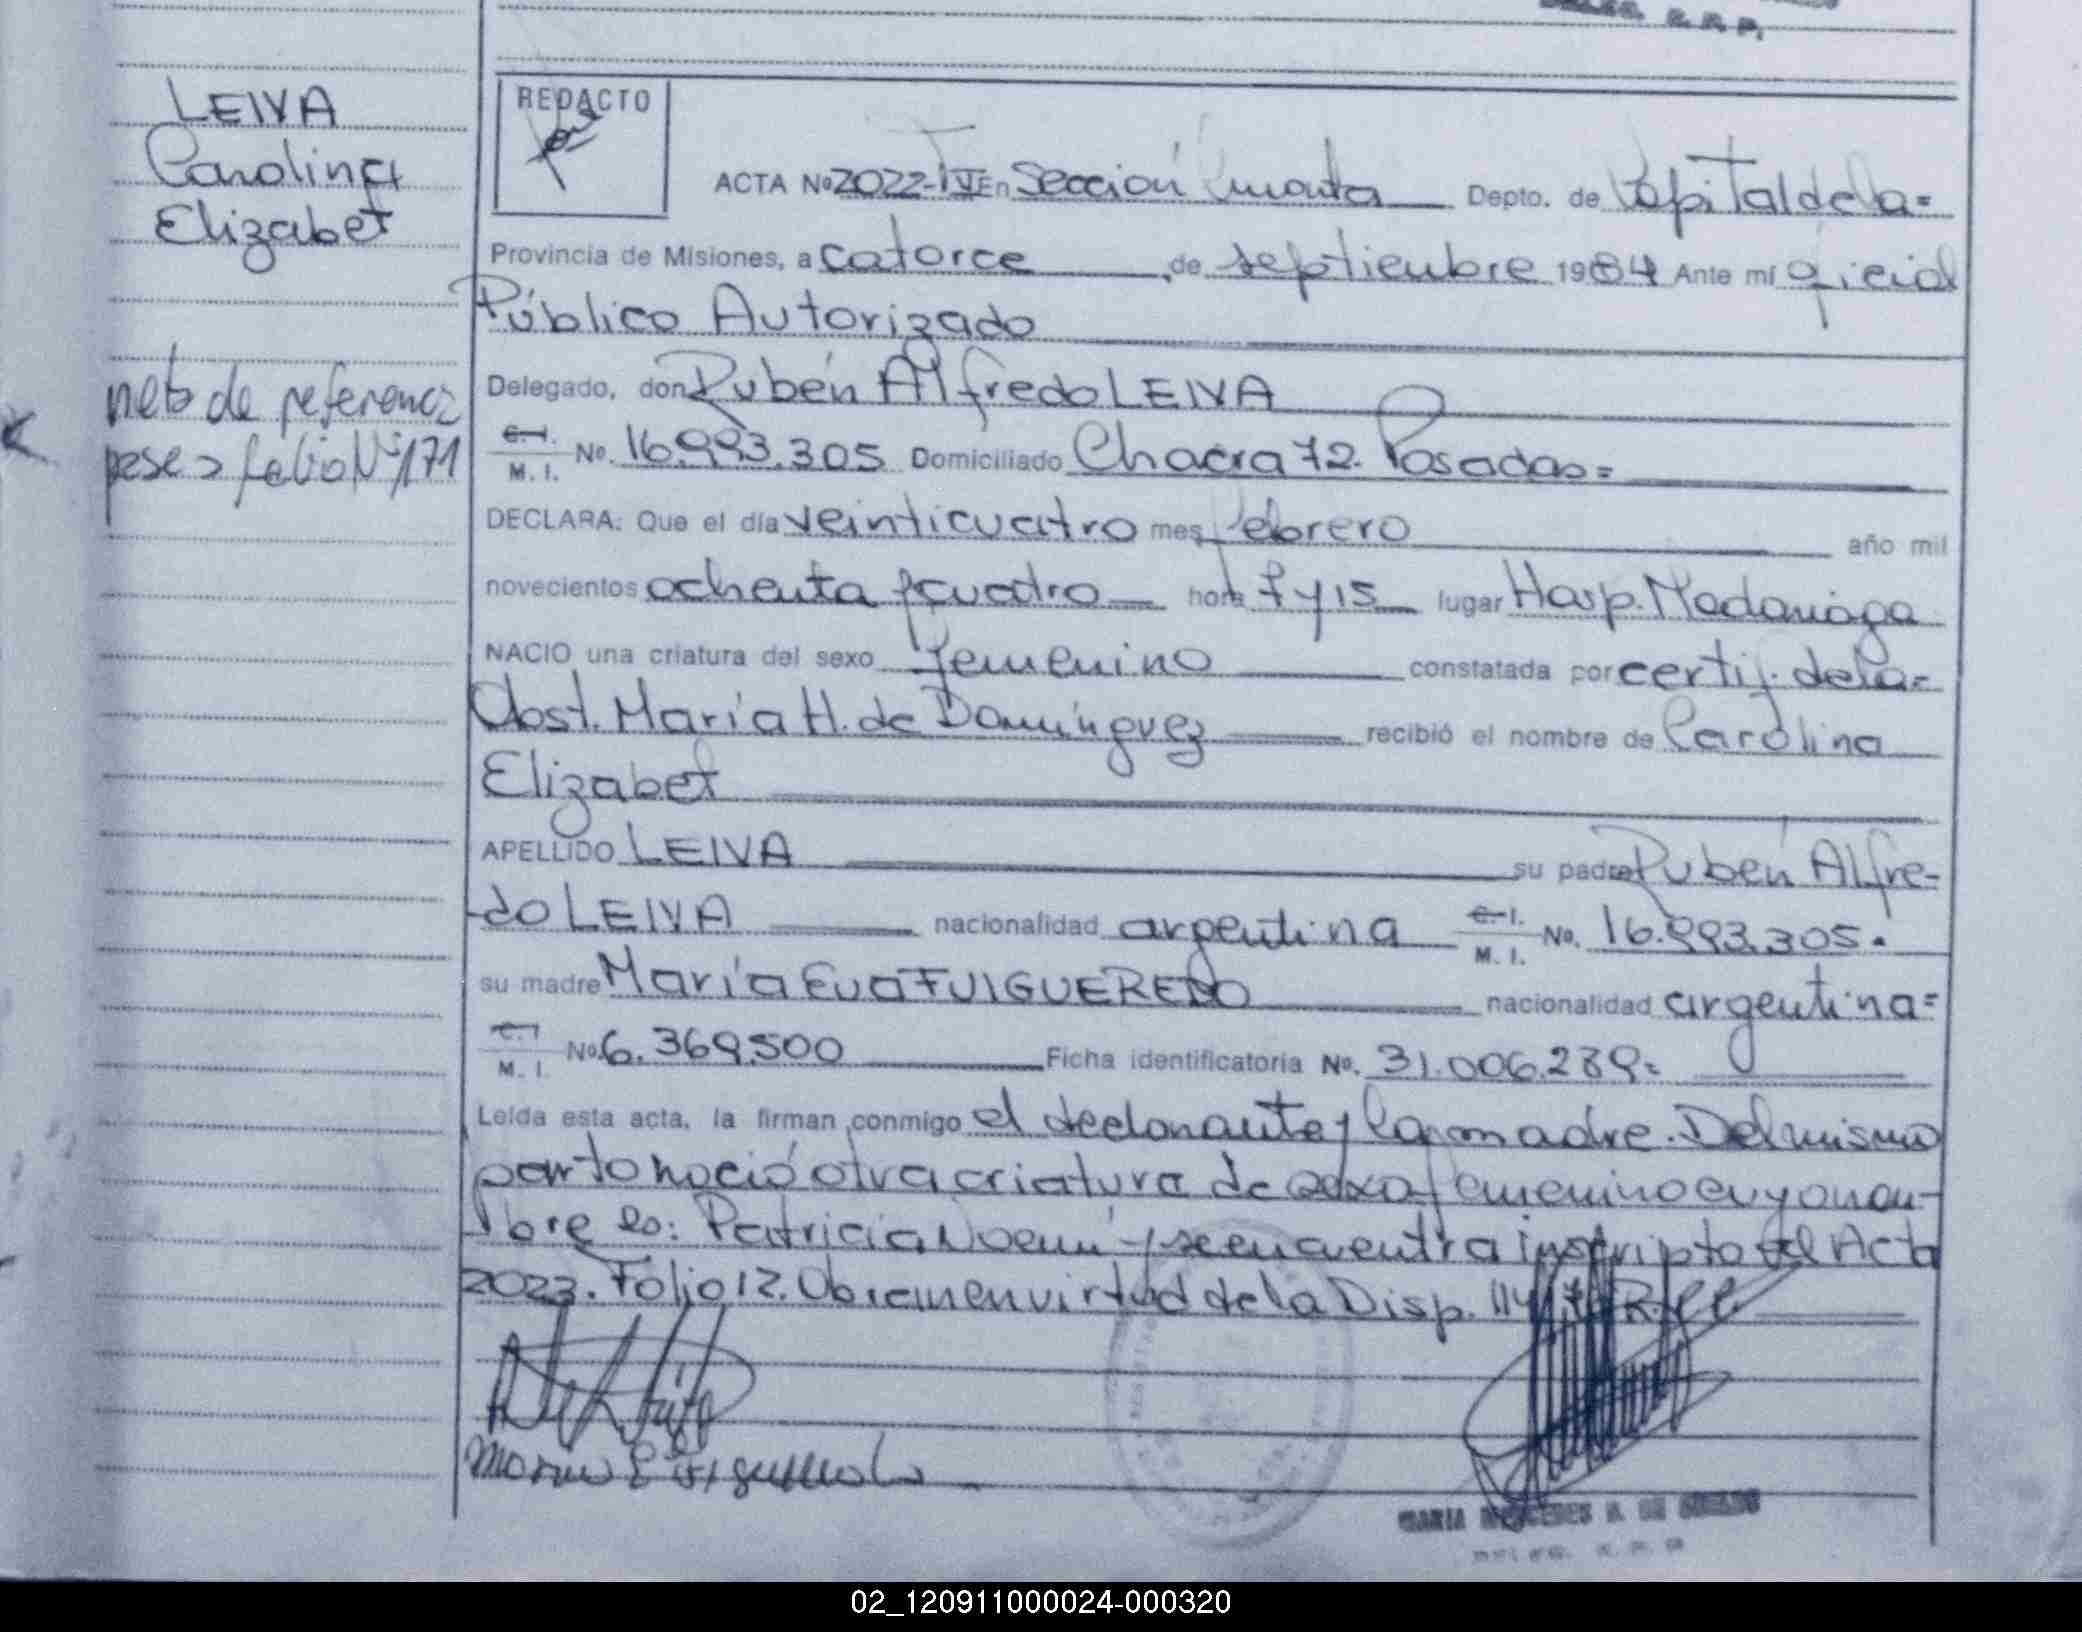 LEIVA
Carolina
Elizabet
nota de referencia
pase a folio Nº 171
REDACTO
ACTA Nº 2022-IV En Sección Cuarta Depto. de Capital de la=
Provincia de Misiones, a catorce de septiembre 1984 Ante mí oficial
Público Autorizado
Delegado, don Rubén Alfredo LEIVA
C. I. M. I. No. 16.993.305 Domiciliado Chacra 72. Posadas=
DECLARA: Que el día veinticuatro mes febrero año mil
novecientos ochenta y cuatro hora 7 y 15 lugar Hosp. Madariaga
NACIO una criatura del sexo femenino constatada por certif. de la=
Obst. María H. de Domínguez recibió el nombre de Carolina
Elizabet
APELLIDO LEIVA su padre Rubén Alfre-
do LEIVA nacionalidad argentina C. I. M. I. No. 16.993.305.
su madre María Eva FUIGUEREDO nacionalidad argentina=
C. I. M. I. No. 6.369.500 Ficha identificatoria No. 31.006.289=
Leída esta acta, la firman conmigo el declarante y la madre. Del mismo
parto nació otra criatura de sexo femenino cuyo nom-
bre es: Patricia Noemí y se encuentra inscripto al Acta
2023. Folio 12. Obran en virtud de la Disp. 114
MARIA MERCEDES
02_120911000024-000320